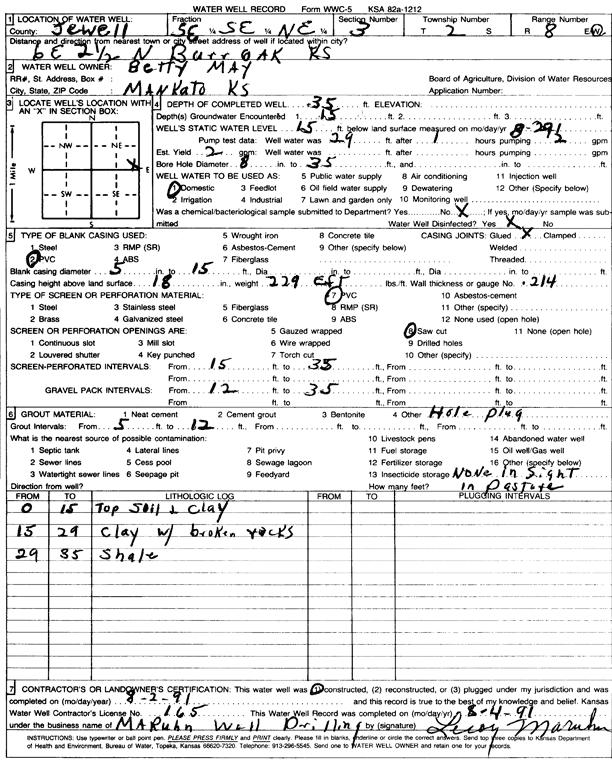 WATER WELL RECORD Form WWC-5 KSA 82a-1212
1 LOCATION OF WATER WELL: Fraction Section Number Township Number Range Number
County: Jewell SE ¼ SE ¼ NE ¼ 3 T 2 S R 8 E/W
Distance and direction from nearest town or city street address of well if located within city?
6E 2½ N Burr OAK KS
2 WATER WELL OWNER: Betty MAY
RR#, St. Address, Box # : Board of Agriculture, Division of Water Resources
City, State, ZIP Code : MANKato KS Application Number:
3 LOCATE WELL'S LOCATION WITH AN "X" IN SECTION BOX:
N
NW NE
W E
X
SW SE
S
1 Mile
4 DEPTH OF COMPLETED WELL 35 ft. ELEVATION:
Depth(s) Groundwater Encountered 1. 15 ft. 2. ft. 3. ft.
WELL'S STATIC WATER LEVEL 15 ft. below land surface measured on mo/day/yr 8-2-91
Pump test data: Well water was 29 ft. after 1 hours pumping 2 gpm
Est. Yield 2 gpm: Well water was ft. after hours pumping gpm
Bore Hole Diameter 8 in. to 35 ft., and in. to ft.
WELL WATER TO BE USED AS: 5 Public water supply 8 Air conditioning 11 Injection well
1 Domestic 3 Feedlot 6 Oil field water supply 9 Dewatering 12 Other (Specify below)
2 Irrigation 4 Industrial 7 Lawn and garden only 10 Monitoring well
Was a chemical/bacteriological sample submitted to Department? Yes No X ; If yes, mo/day/yr sample was submitted Water Well Disinfected? Yes X No
5 TYPE OF BLANK CASING USED: 5 Wrought iron 8 Concrete tile CASING JOINTS: Glued X Clamped
1 Steel 3 RMP (SR) 6 Asbestos-Cement 9 Other (specify below) Welded
2 PVC 4 ABS 7 Fiberglass Threaded
Blank casing diameter 5 in. to 15 ft., Dia in. to ft., Dia in. to ft.
Casing height above land surface 18 in., weight 229 lbs./ft. Wall thickness or gauge No. .214
TYPE OF SCREEN OR PERFORATION MATERIAL: 7 PVC 10 Asbestos-cement
1 Steel 3 Stainless steel 5 Fiberglass 8 RMP (SR) 11 Other (specify)
2 Brass 4 Galvanized steel 6 Concrete tile 9 ABS 12 None used (open hole)
SCREEN OR PERFORATION OPENINGS ARE: 5 Gauzed wrapped 8 Saw cut 11 None (open hole)
1 Continuous slot 3 Mill slot 6 Wire wrapped 9 Drilled holes
2 Louvered shutter 4 Key punched 7 Torch cut 10 Other (specify)
SCREEN-PERFORATED INTERVALS: From 15 ft. to 35 ft., From ft. to ft.
From ft. to ft., From ft. to ft.
GRAVEL PACK INTERVALS: From 12 ft. to 35 ft., From ft. to ft.
From ft. to ft., From ft. to ft.
6 GROUT MATERIAL: 1 Neat cement 2 Cement grout 3 Bentonite 4 Other Hole plug
Grout Intervals: From 5 ft. to 12 ft., From ft. to ft., From ft. to ft.
What is the nearest source of possible contamination: 10 Livestock pens 14 Abandoned water well
1 Septic tank 4 Lateral lines 7 Pit privy 11 Fuel storage 15 Oil well/Gas well
2 Sewer lines 5 Cess pool 8 Sewage lagoon 12 Fertilizer storage 16 Other (specify below)
3 Watertight sewer lines 6 Seepage pit 9 Feedyard 13 Insecticide storage NONe in Sight
Direction from well? How many feet? in Pasture
FROM TO LITHOLOGIC LOG FROM TO PLUGGING INTERVALS
0 15 Top Soil & Clay
15 29 Clay w/ broken rocks
29 35 Shale
7 CONTRACTOR'S OR LANDOWNER'S CERTIFICATION: This water well was (1) constructed, (2) reconstructed, or (3) plugged under my jurisdiction and was
completed on (mo/day/year) 8-2-91 and this record is true to the best of my knowledge and belief. Kansas
Water Well Contractor's License No. 165 This Water Well Record was completed on (mo/day/yr) 8-4-91
under the business name of MARuhn Well Drilling by (signature) Leroy Maruhn
INSTRUCTIONS: Use typewriter or ball point pen. PLEASE PRESS FIRMLY and PRINT clearly. Please fill in blanks, underline or circle the correct answers. Send top three copies to Kansas Department
of Health and Environment, Bureau of Water, Topeka, Kansas 66620-7320. Telephone: 913-296-5545. Send one to WATER WELL OWNER and retain one for your records.